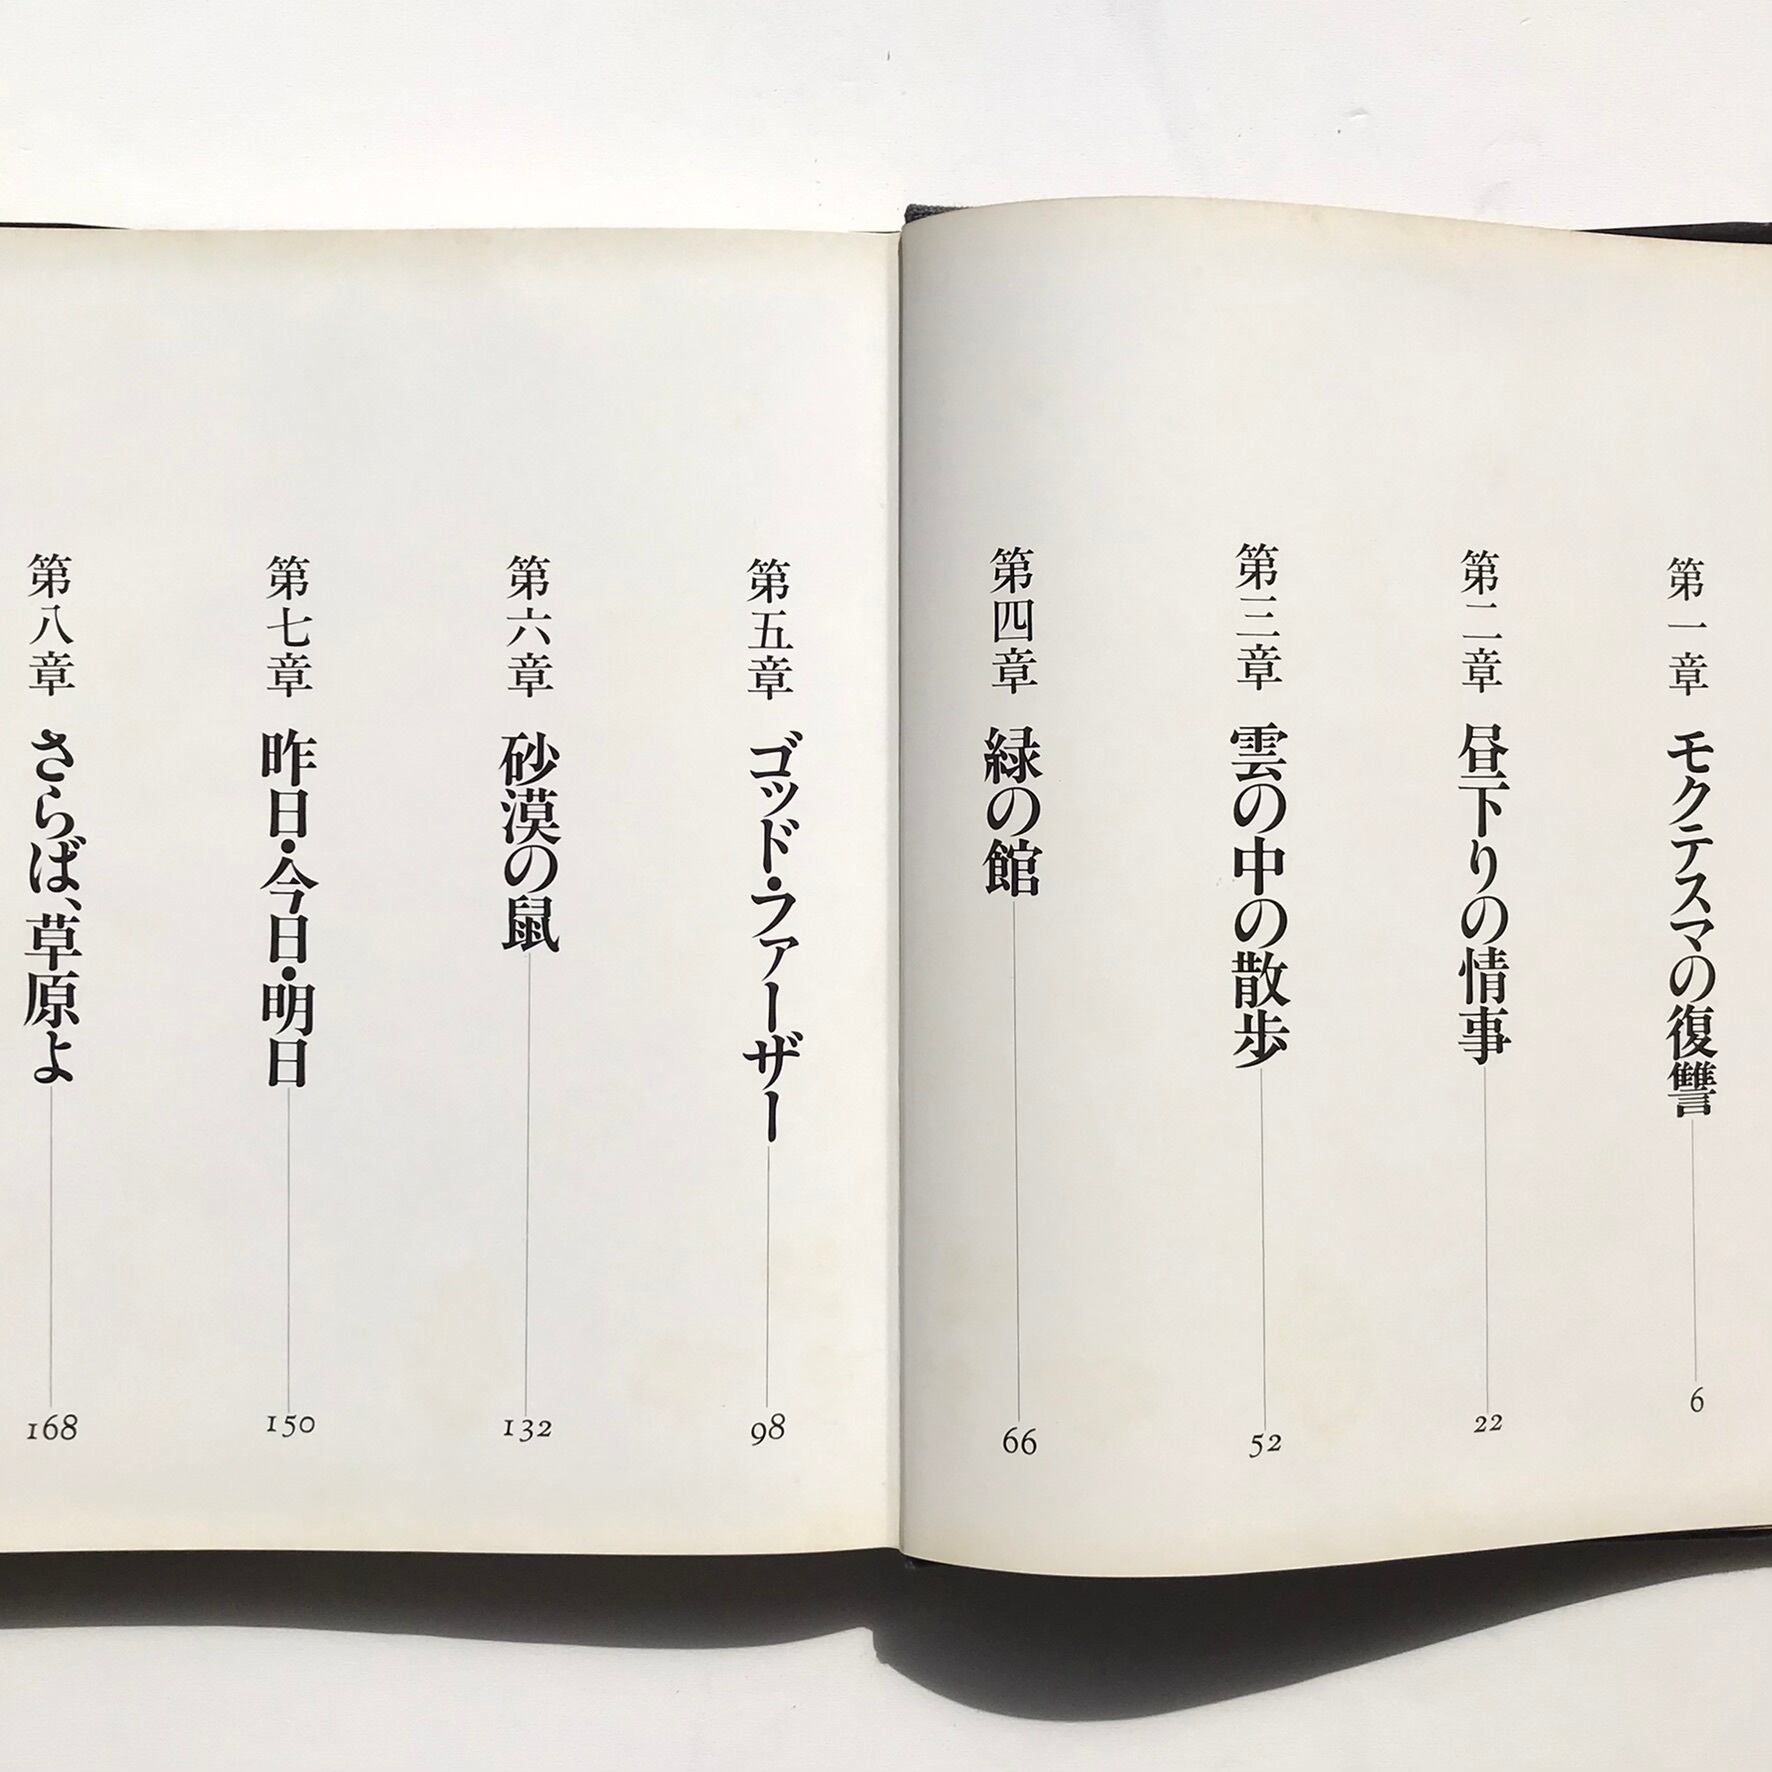 第一章 モクテスマの復讐 6
第二章 昼下りの情事 22
第三章 雲の中の散歩 52
第四章 緑の館 66
第五章 ゴッド・ファーザー 98
第六章 砂漠の鼠 132
第七章 昨日・今日・明日 150
第八章 さらば、草原よ 168